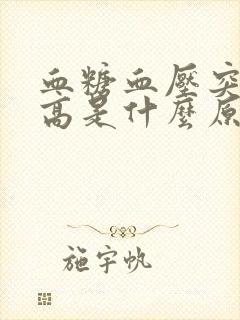 血糖血壓突
高是什麼原
施宇帆